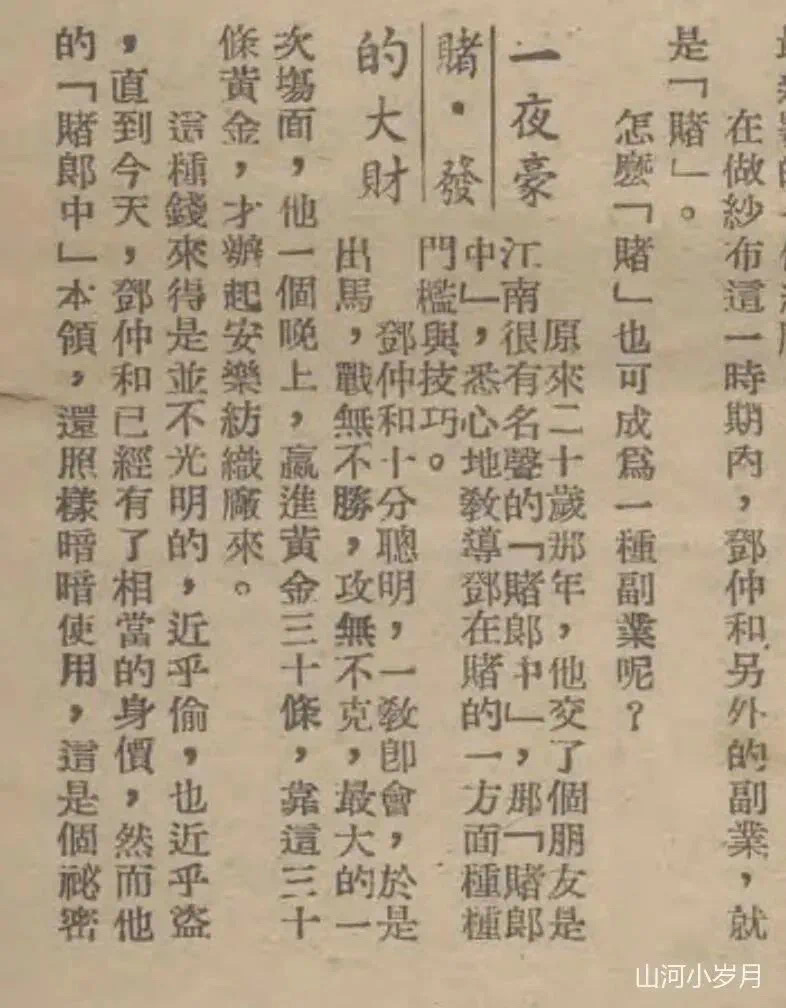 在做紗布這一時期內，鄧仲和另外的副業，就
是「賭」。
怎麽「賭」也可成爲一種副業呢？
一夜豪
賭·發
的大財
原來二十歲那年，他交了個朋友是
江南很有名聲的「賭郎中」，那「賭郎
中」，悉心地敎導鄧在賭的一方面種種
門檻與技巧。
鄧仲和十分聰明，一敎卽會，於是
出馬，戰無不勝，攻無不克，最大的一
次塲面，他一個晚上，贏進黃金三十條，靠這三十
條黃金，才辦起安樂紡織廠來。
這種錢來得是並不光明的，近乎偷，也近乎盜
，直到今天，鄧仲和已經有了相當的身價，然而他
的「賭郎中」本領，還照樣暗暗使用，這是個祕密
山河小岁月